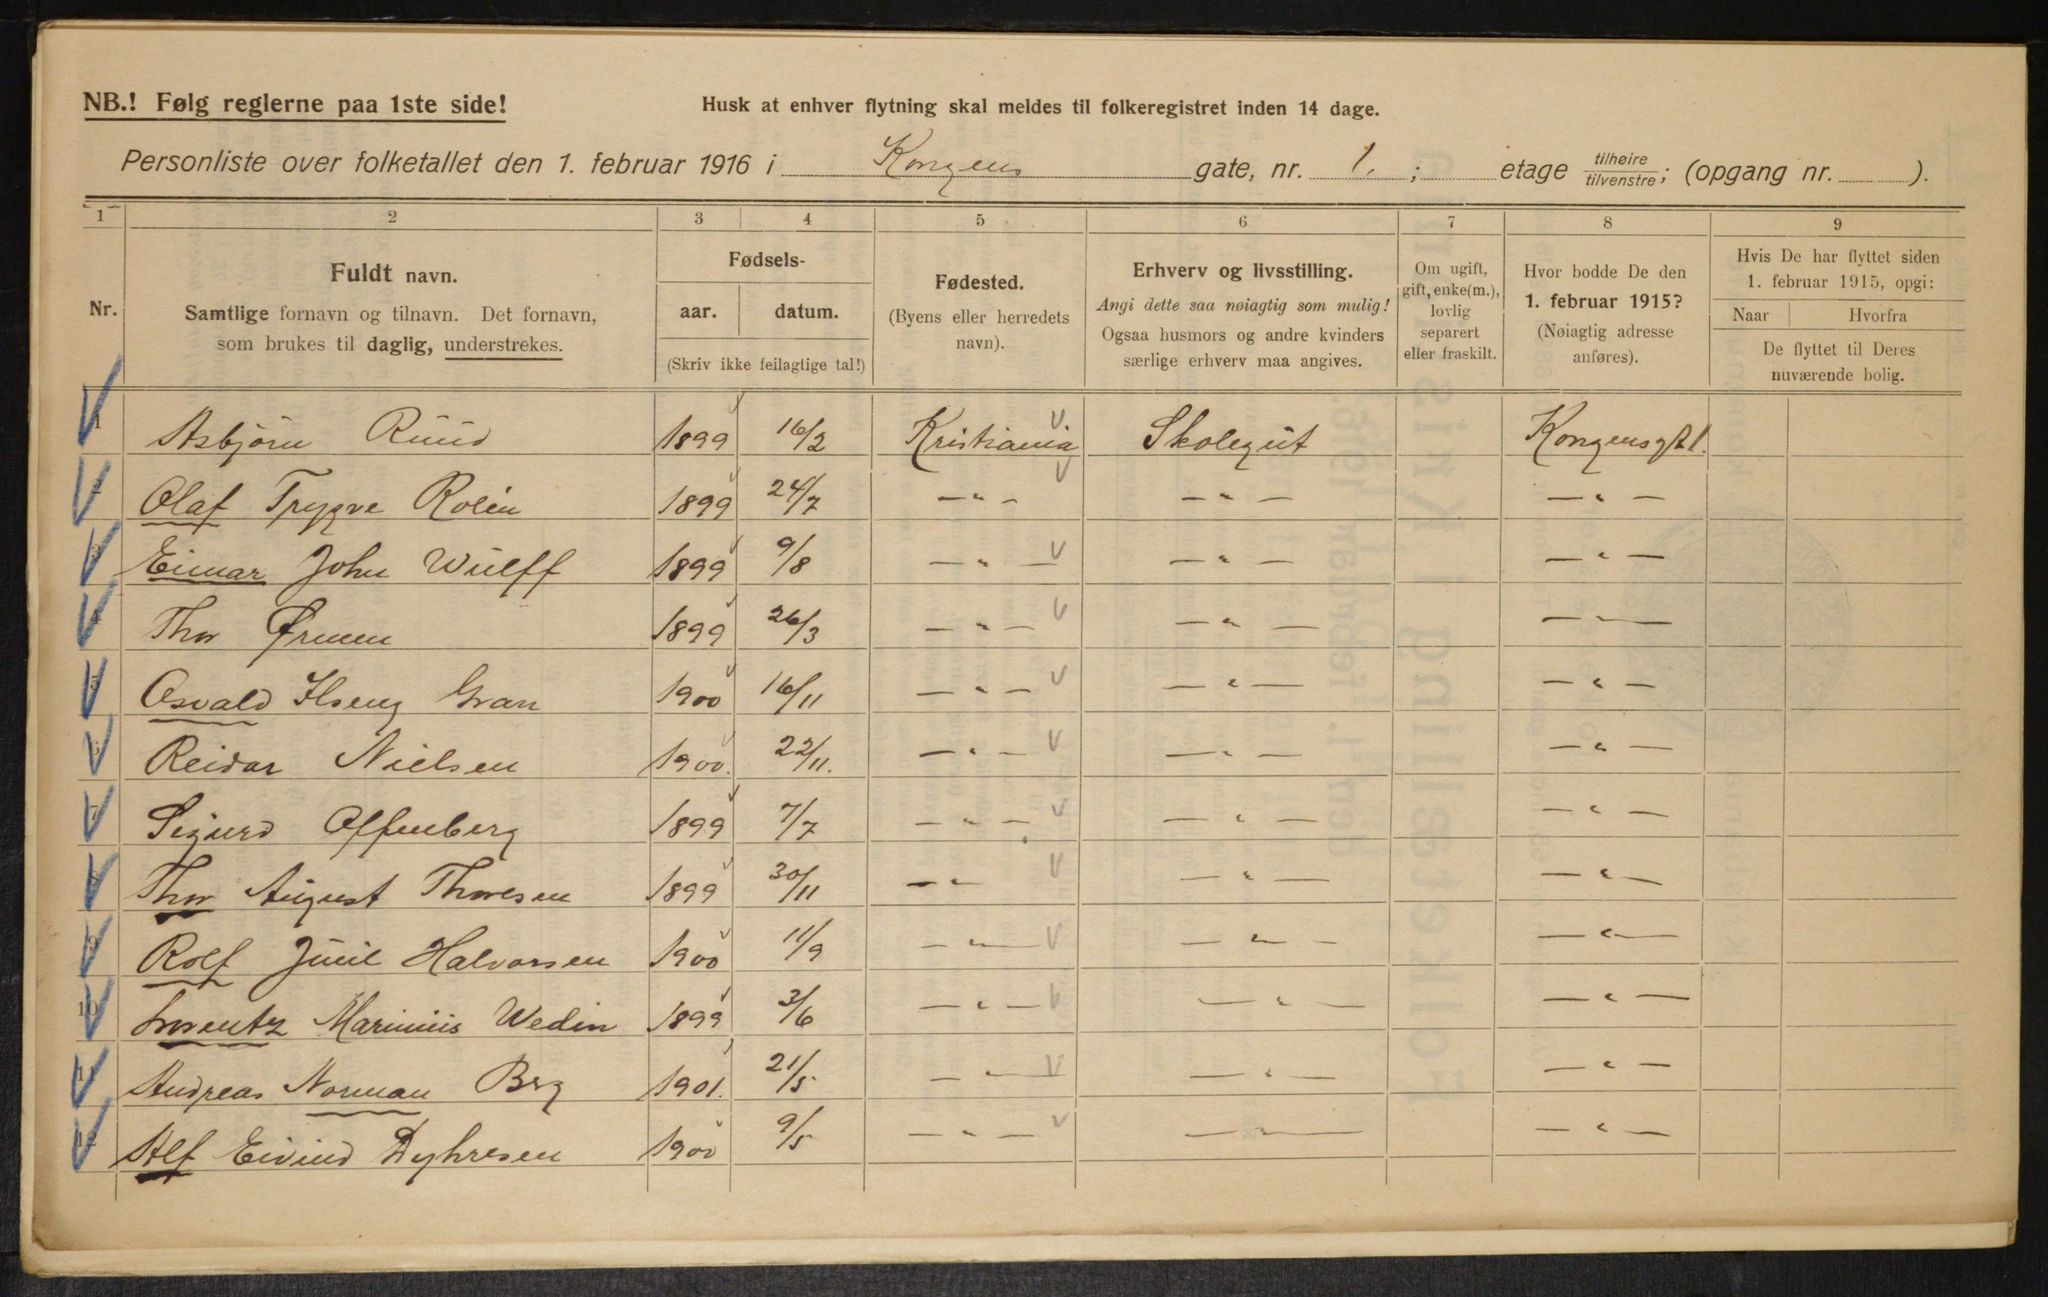 NB.! Følg reglerne paa 1ste side!
Husk at enhver flytning skal meldes til folkeregistret inden 14 dage.
Personliste over folketallet den 1. februar 1916 i Kongens gate, nr. 1. ; etage tilhøire/tilvenstre; (opgang nr. ).
1 2 3 4 5 6 7 8 9
Nr.
Fuldt navn.
Samtlige fornavn og tilnavn. Det fornavn,
som brukes til daglig, understrekes.
Fødsels-
aar. datum.
(Skriv ikke feilagtige tal!)
Fødested.
(Byens eller herredets
navn).
Erhverv og livsstilling.
Angi dette saa nøiagtig som mulig!
Ogsaa husmors og andre kvinders
særlige erhverv maa angives.
Om ugift,
gift, enke(m.),
lovlig
separert
eller fraskilt.
Hvor bodde De den
1. februar 1915?
(Nøiagtig adresse
anføres).
Hvis De har flyttet siden
1. februar 1915, opgi:
Naar Hvorfra
De flyttet til Deres
nuværende bolig.
1 Asbjørn Ruud 1899 16/2 Kristiania Skolegut Kongensgt 1.
2 Olaf Trygve Rolén 1899 24/7 — " — — " — — " —
3 Einar John Wulff 1899 9/8 — " — — " — — " —
4 Thor Ørmen 1899 26/3 — " — — " — — " —
5 Osvald Ilseng Gran 1900 16/11 — " — — " — — " —
6 Reidar Nielsen 1900. 22/11. — " — — " — — " —
7 Sigurd Offenberg 1899 7/7 — " — — " — — " —
8 Thor August Thoresen 1899 30/11 — " — — " — — " —
9 Rolf Juul Halvorsen 1900 11/9 — " — — " — — " —
10 Lorentz Marinius Wedin 1899 3/6 — " — — " — — " —
11 Andreas Norman Berg 1901. 21/5 — " — — " — — " —
12 Alf Eivind Dyhresen 1900 9/5 — " — — " — — " —